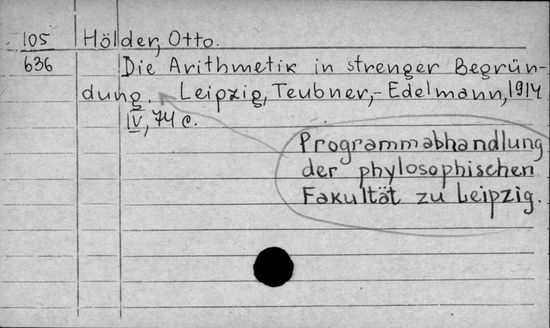 105 Hölder, Otto.
636 Die Arithmetik in strenger Begrün-
dung. Leipzig, Teubner,-Edelmann, 1914
IV, 74 c.
Programmabhandlung
der phylosophischen
Fakultät zu Leipzig.